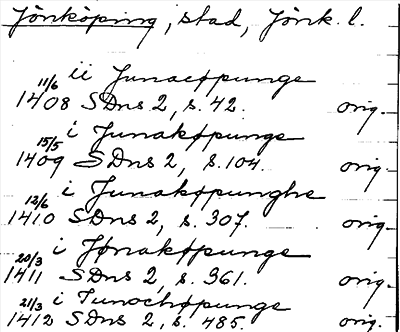 Jönköping, stad, Jönk. l.
ii Junacøpunge
11/6
1408 SDns 2, s. 42. orig.
i Junakøpunge
15/5
1409 SDns 2, s. 104. orig.
i Junakøpunghe
12/6
1410 SDns 2, s. 307. orig.
i Jønakøpunge
20/3
1411 SDns 2, s. 361. orig.
i Junochøpunge
21/3
1412 SDns 2, s. 485. orig.